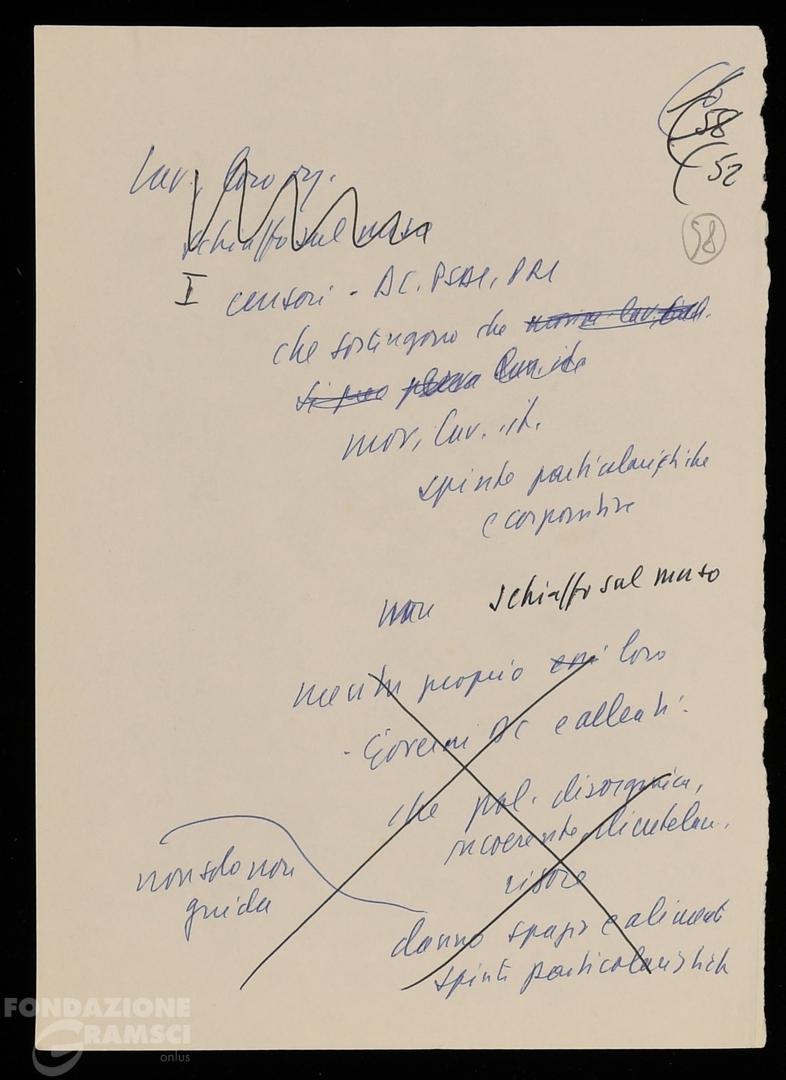 58
52
58
lav,
schiaffo sul muso
I censori - DC, PSDI, PRI
che sostengono che
si può
mov, lav. it.
spinte particolaristiche
e corporative
schiaffo sul muso
mentre proprio loro
- Governi DC e alleati -
che pol. disorganica,
incoerente, clientelare,
non solo non
guida
danno spazio e alimenti
spinte particolaristich
FONDAZIONE
GRAMSCI
onlus